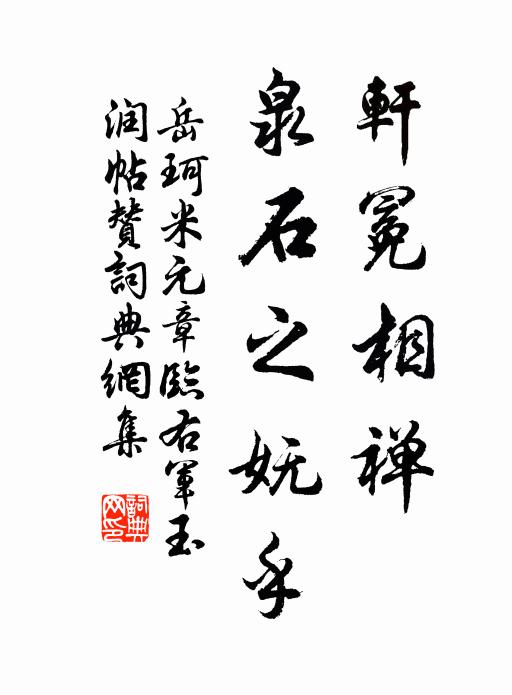 軒冕相禅
泉石之妩乎
岳珂米元章臨右軍玉
润帖贊詞典網集
詞典网印